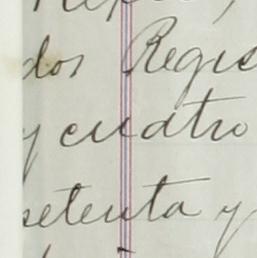 dos Regis
y cuatro
setenta y